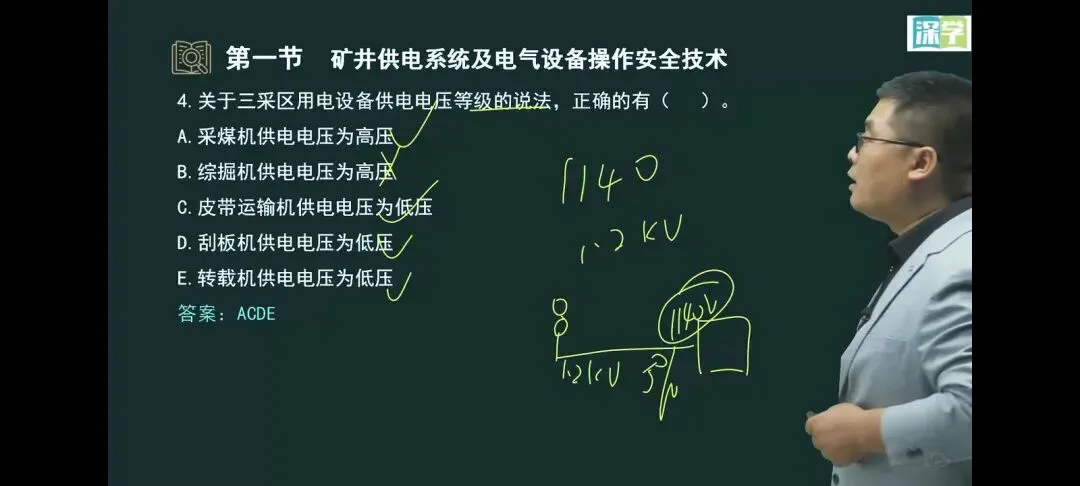 深学
第一节 矿井供电系统及电气设备操作安全技术
4.关于三采区用电设备供电电压等级的说法，正确的有（ ）。
A.采煤机供电电压为高压
B.综掘机供电电压为高压
C.皮带运输机供电电压为低压
D.刮板机供电电压为低压
E.转载机供电电压为低压
答案：ACDE
1140
1.2KV
1140V
1.2KV